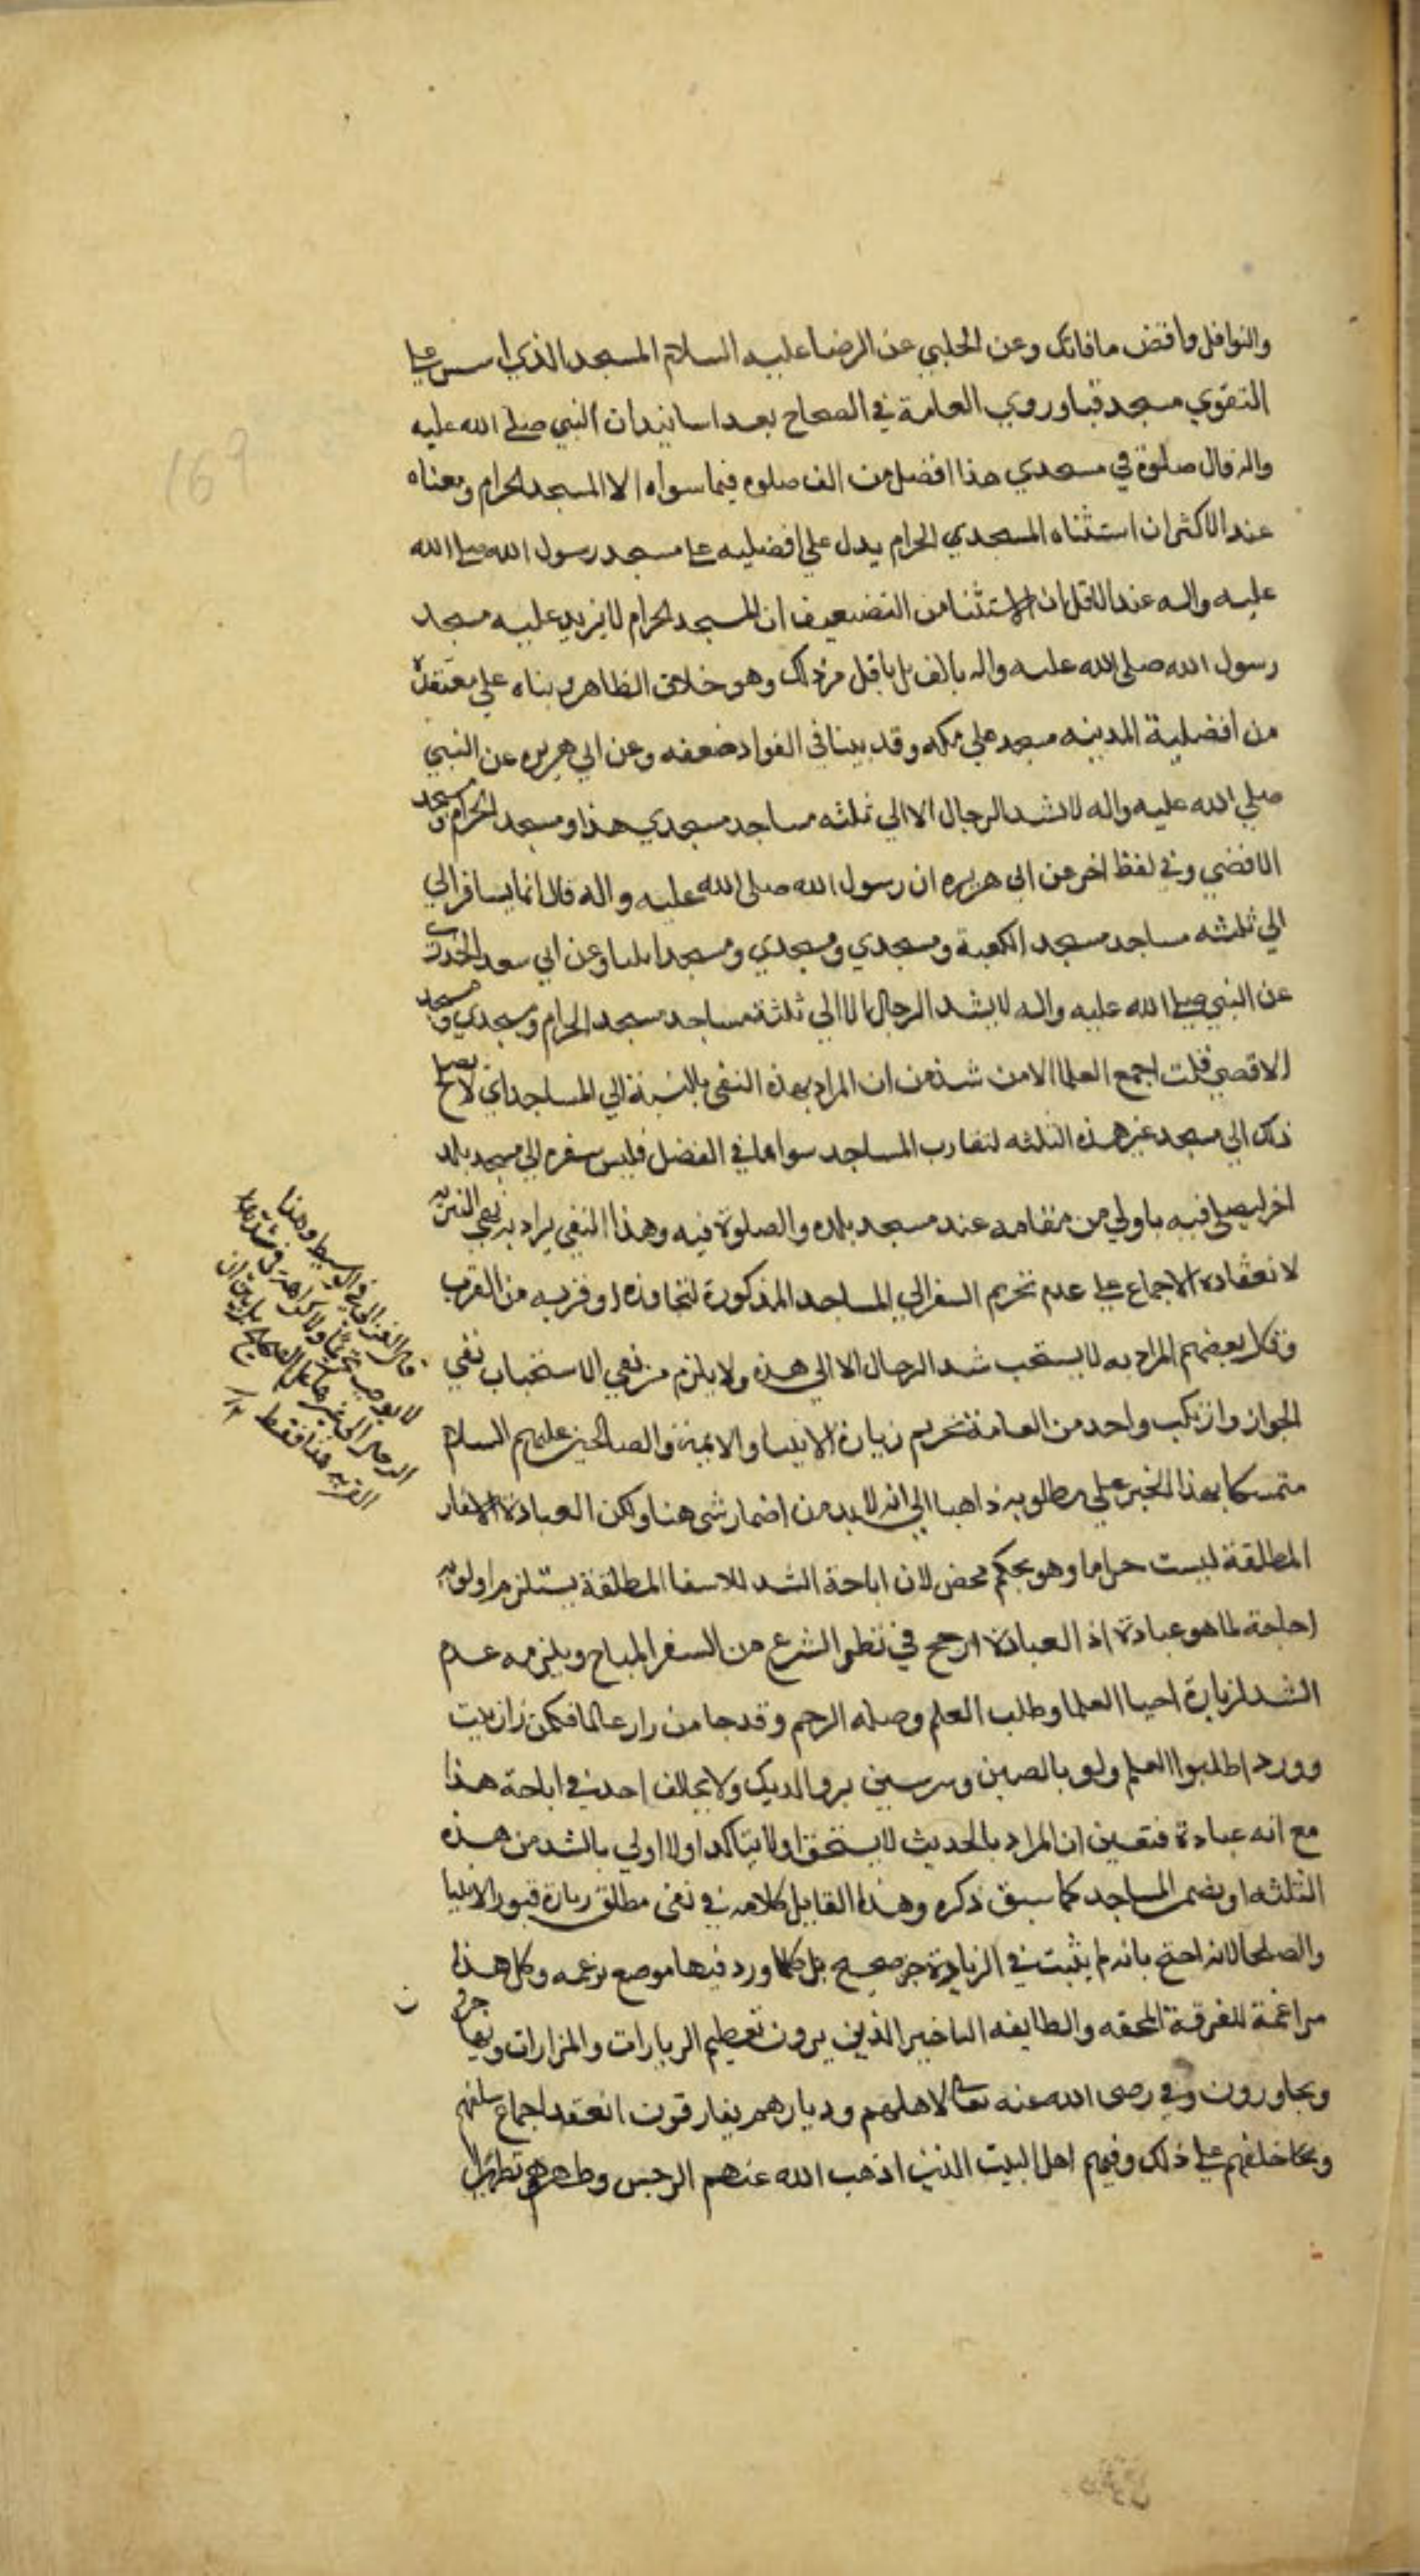 والنوافل واقض مافاتك وعن الحلبي عن الرضا عليه السلام المسجد الذي اسس علي
التقوي مسجد قبا وروي العامة في الصحاح بعدا سانيد ان النبي صلي الله عليه
واله قال صلوة في مسجدي هذا افضل من الف صلوه فيما سواه الا المسجد الحرام ومعناه
عند الاكثر ان استثناه المسجدي الحرام يدل علي افضليه علي مسجد رسول الله صلي الله
عليه واله عند الاقل ان الاستثنا من التضعيف ان المسجد الحرام لا يزيد عليه مسجد
رسول الله صلي الله عليه واله بالف بل باقل من ذلك وهو خلاف الظاهر وبناه علي معتقده
من افضلية المدينه مسجد علي مكه وقد بينا في القواد ضعفه وعن ابي هريره عن النبي
صلي الله عليه واله لا تشد الرحال الا الي ثلثه مساجد مسجدي هذا ومسجد الحرام ومسجد
الاقضي وفي لفظ اخر عن ابي هريره ان رسول الله صلي الله عليه واله قال انما يسافر الي
الي ثلثه مساجد مسجد الكعبة ومسجدي ومسجدي ومسجد ايليا وعن ابي سعد الخدري
عن النبي صلي الله عليه واله لا يشد الرحال الا الي ثلثة مساجد مسجد الحرام ومسجدي ومسجد
الاقصي قلت اجمع العلما الا من شذ من ان المراد بهذه النفي بالنسبة الي المساجد اي لا يصلح
ذلك الي مسجد غير هذه الثلثه لتقارب المساجد سواها في الفضل فليس سفره الي مسجد بلد
اخر ليصلي فيه باولي من مقامه عند مسجد بلده والصلوة فيه وهذا النفي يراد به نفي التنزيه
لانعقاده الاجماع علي عدم تحريم السفر الي المساجد المذكورة لتجاوزه او قربه من القرب
وقال بعضهم المراد به لا يستحب شد الرحال الا الي هذه ولا يلزم من نفي الاستحباب نفي
الجواز وارتكب واحد من العامة تحريم زيارة الانبيا والايمة والصالحين عليهم السلام
متمسكا بهذا الخبر علي مطلوبه ذاهبا الي انه لا بد من اضمار شي هنا ولكن العبادة الاسفار
المطلقة ليست حراما وهو تحكم محض لان اباحة الشد للاسفا المطلقة يستلزم اولويه
اباحة لما هو عبادة اذ العبادة ارجح في نظر الشرع من السفر المباح ويلزمه عدم
الشد لزيارة احيا العلما وطلب العلم وصله الرحم وقد جا من زار عالما فكمن زار بيت
وورد اطلبوا العلم ولو بالصين وسر سنين بر والديك ولا يخالف احد في اباحة هذا
مع انه عبادة فتعين ان المراد بالحديث لا يستحق او لا يتاكد او لا اولي بالشد من هذه
الثلثه او يضمر المساجد كما سبق ذكره وهذا القايل كلامه في نفي مطلق زيارة قبور الانبيا
والصلحا لانه احتج بانه لم يثبت في الزيارة خبر صحيح بل كلما ورد فيها موضع بزعمه وكل هذا
مراغمة للفرقة المحقه والطايفه الناخير الذين يرون تعظيم الزيارات والمزارات ويهاجرون
ويجاورون وفي رضي الله عنه تعالي لاهلهم وديارهم يفارقون انعقد اجماع سلفهم
وكاخلفهم علي ذلك وفيهم اهل البيت الذين اذهب الله عنهم الرجس وطهرهم تطهيرا
قال الغزالي في الوسيط وهذا
لا يوجب تحريما ولا كراهة في شد
الرحال الي غيرها علي الصحيح بل بين ان
القربه هنا فقط ١٢
169